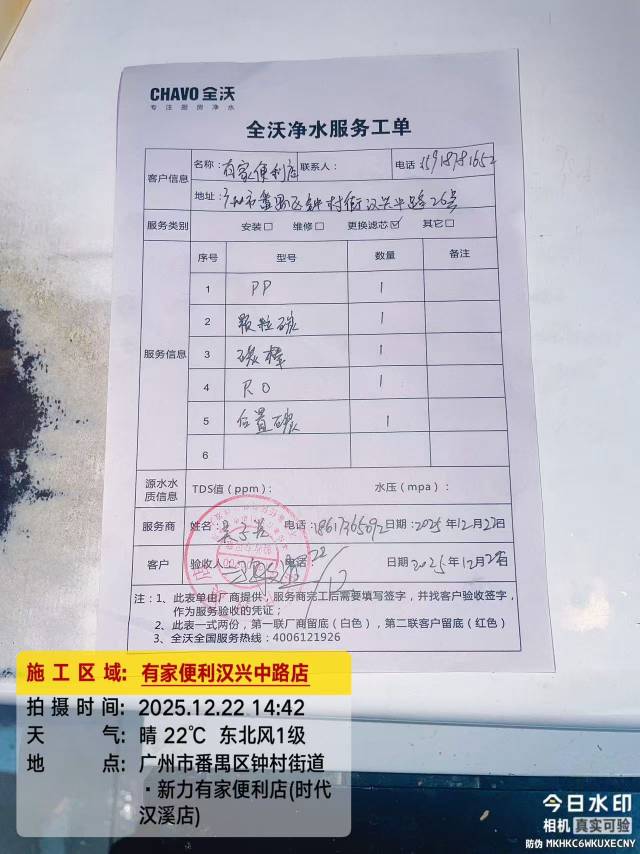 CHAVO 全沃
专注厨房净水
全沃净水服务工单
客户信息 名称：有家便利店 联系人： 电话 15918781652
地址：广州市番禺区钟村街汉兴中路26号
服务类别 安装□ 维修□ 更换滤芯☑ 其它□
服务信息 序号 型号 数量 备注
1 PP 1
2 颗粒碳 1
3 碳棒 1
4 RO 1
5 后置碳 1
6
源水水质信息 TDS值（ppm）： 水压（mpa）：
服务商 姓名： 电话：18617365092 日期：2025年12月22日
客户 验收人 电话： 22/12 日期 2025年12月22日
注：1、此表单由厂商提供，服务商完工后需要填写签字，并找客户验收签字，
作为服务验收的凭证；
2、此表一式两份，第一联厂商留底（白色），第二联客户留底（红色）
3、全沃全国服务热线：4006121926
施工区域：有家便利汉兴中路店
拍摄时间：2025.12.22 14:42
天气：晴 22℃ 东北风1级
地点：广州市番禺区钟村街道
·新力有家便利店(时代
汉溪店)
今日水印
相机 真实可验
防伪 MKHKC6WKUXECNY